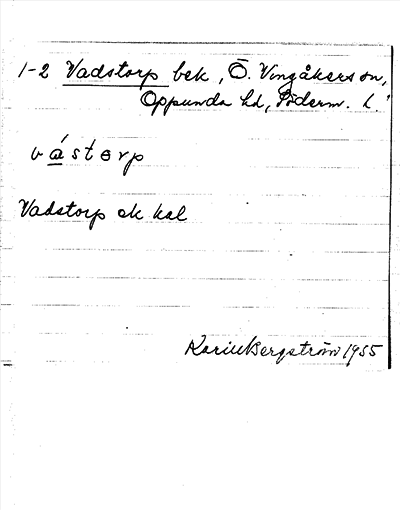 1-2 Vadstorp bek, Ö. Vingåkers sn,
Oppunda hd, Söderm. l.
vástɵrp
Vadstorp ek kal
Karin Bergström 1955